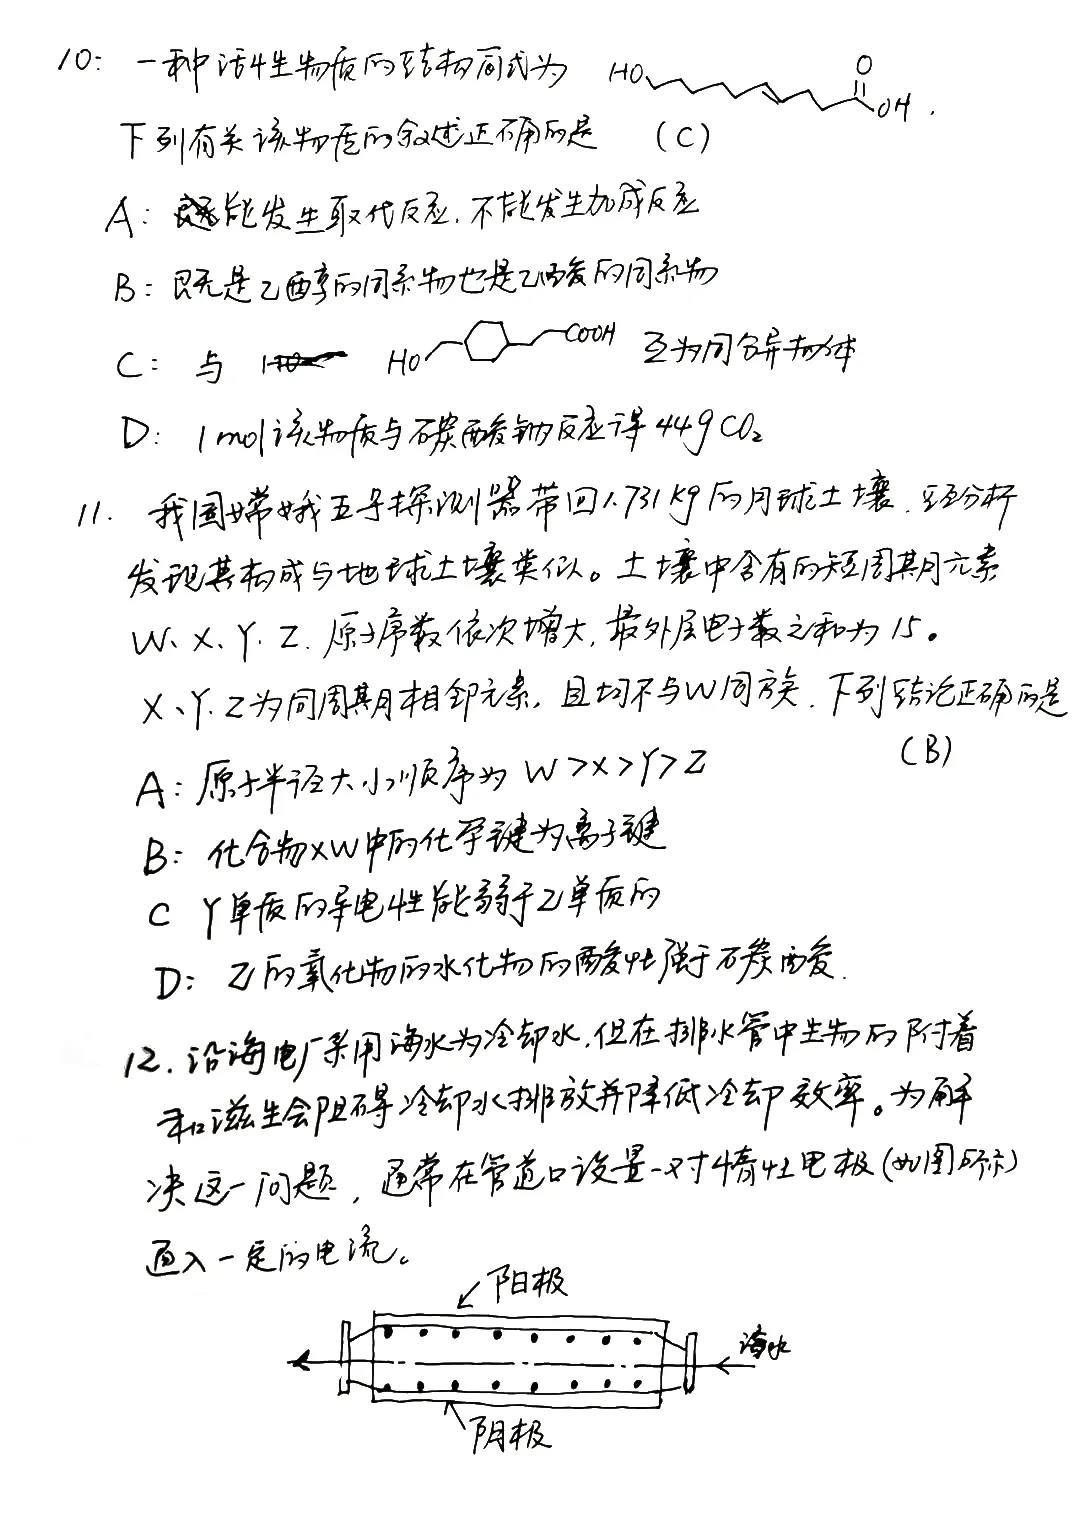 10: 一种活性生物质的结构简式为 HO O OH .
下列有关该物质的叙述正确的是 (C)
A: 能发生取代反应.不能发生加成反应
B: 既是乙醇的同系物也是乙酸的同系物
C: 与 HO COOH 互为同分异构体
D: 1mol该物质与碳酸钠反应得 44g CO₂
11. 我国嫦娥五号探测器带回1.731kg的月球土壤.经分析
发现其构成与地球土壤类似。土壤中含有的短周期元素
W、X、Y、Z.原子序数依次增大,最外层电子数之和为15。
X、Y、Z为同周期相邻元素,且均不与W同族.下列结论正确的是
(B)
A: 原子半径大小顺序为 W>X>Y>Z
B: 化合物XW中的化学键为离子键
C Y单质的导电性能弱于Z单质的
D: Z的氧化物的水化物的酸性强于碳酸.
12.沿海电厂采用海水为冷却水,但在排水管中生物的附着
和滋生会阻碍冷却水排放并降低冷却效率。为解
决这一问题,通常在管道口设置一对惰性电极(如图所示)
通入一定的电流。
阳极
海水
阴极